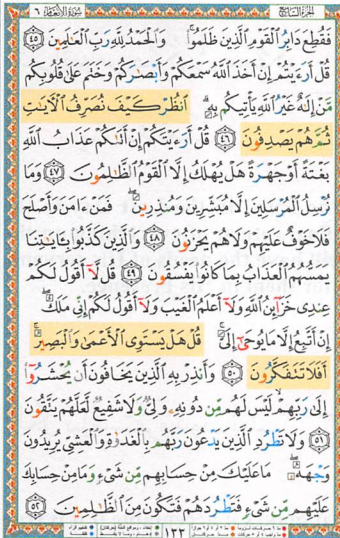 الجزء السابع سورة الأنعام ٦
فَقُطِعَ دَابِرُ ٱلْقَوْمِ ٱلَّذِينَ ظَلَمُوا۟ ۚ وَٱلْحَمْدُ لِلَّهِ رَبِّ ٱلْعَـٰلَمِينَ ٤٥
قُلْ أَرَءَيْتُمْ إِنْ أَخَذَ ٱللَّهُ سَمْعَكُمْ وَأَبْصَـٰرَكُمْ وَخَتَمَ عَلَىٰ قُلُوبِكُم
مَّنْ إِلَـٰهٌ غَيْرُ ٱللَّهِ يَأْتِيكُم بِهِ ۗ ٱنظُرْ كَيْفَ نُصَرِّفُ ٱلْـَٔايَـٰتِ
ثُمَّ هُمْ يَصْدِفُونَ ٤٦ قُلْ أَرَءَيْتَكُمْ إِنْ أَتَىٰكُمْ عَذَابُ ٱللَّهِ
بَغْتَةً أَوْ جَهْرَةً هَلْ يُهْلَكُ إِلَّا ٱلْقَوْمُ ٱلظَّـٰلِمُونَ ٤٧ وَمَا
نُرْسِلُ ٱلْمُرْسَلِينَ إِلَّا مُبَشِّرِينَ وَمُنذِرِينَ ۖ فَمَنْ ءَامَنَ وَأَصْلَحَ
فَلَا خَوْفٌ عَلَيْهِمْ وَلَا هُمْ يَحْزَنُونَ ٤٨ وَٱلَّذِينَ كَذَّبُوا۟ بِـَٔايَـٰتِنَا
يَمَسُّهُمُ ٱلْعَذَابُ بِمَا كَانُوا۟ يَفْسُقُونَ ٤٩ قُل لَّآ أَقُولُ لَكُمْ
عِندِى خَزَآئِنُ ٱللَّهِ وَلَآ أَعْلَمُ ٱلْغَيْبَ وَلَآ أَقُولُ لَكُمْ إِنِّى مَلَكٌ ۖ
إِنْ أَتَّبِعُ إِلَّا مَا يُوحَىٰٓ إِلَىَّ ۚ قُلْ هَلْ يَسْتَوِى ٱلْأَعْمَىٰ وَٱلْبَصِيرُ ۚ
أَفَلَا تَتَفَكَّرُونَ ٥٠ وَأَنذِرْ بِهِ ٱلَّذِينَ يَخَافُونَ أَن يُحْشَرُوٓا۟
إِلَىٰ رَبِّهِمْ ۙ لَيْسَ لَهُم مِّن دُونِهِۦ وَلِىٌّ وَلَا شَفِيعٌ لَّعَلَّهُمْ يَتَّقُونَ
٥١ وَلَا تَطْرُدِ ٱلَّذِينَ يَدْعُونَ رَبَّهُم بِٱلْغَدَوٰةِ وَٱلْعَشِىِّ يُرِيدُونَ
وَجْهَهُۥ ۖ مَا عَلَيْكَ مِنْ حِسَابِهِم مِّن شَىْءٍ وَمَا مِنْ حِسَابِكَ
عَلَيْهِم مِّن شَىْءٍ فَتَطْرُدَهُمْ فَتَكُونَ مِنَ ٱلظَّـٰلِمِينَ ٥٢
١٣٣